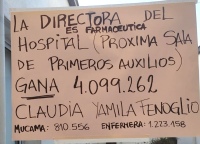 LA DIRECTORA DEL
ES FARMACEUTICA
HOSPITAL (PROXIMA SALA
DE PRIMEROS AUXILIOS)
GANA 4.099.262
CLAUDIA YAMILA FENOGLIO
MUCAMA: 810 556 ENFERMERA: 1.273.158